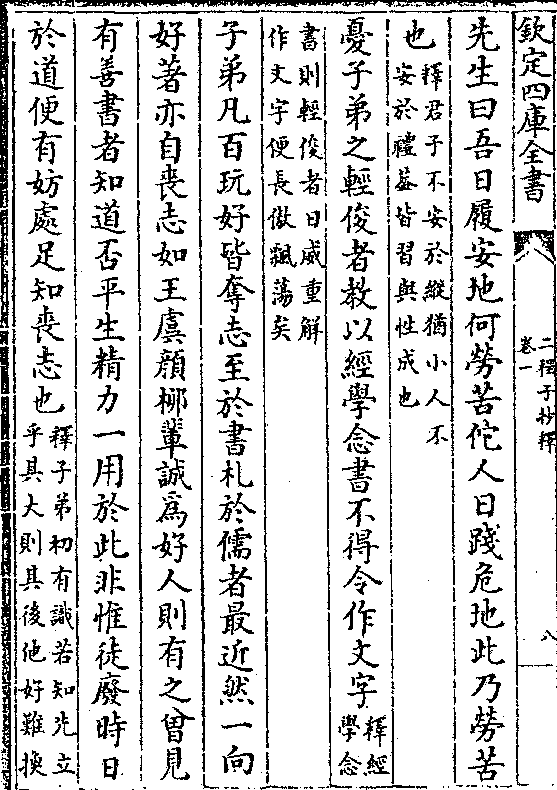 欽定四庫全書
二程子抄釋
卷一
八
先生曰吾日履安地何勞苦佗人日踐危地此乃勞苦
也
釋君子不安於縱猶小人不
安於禮葢皆習與性成也
憂子弟之輕俊者教以經學念書不得令作文字
釋經
學念
書則輕俊者日咸重觧
作文字便長傲飄蕩矣
子弟凡百玩好皆奪志至於書札於儒者最近然一向
好著亦自喪志如王虞顔栁輩誠爲好人則有之曾見
有善書者知道否平生精力一用於此非惟徒廢時日
於道便有妨處足知喪志也
釋子弟初有識若知先立
乎其大則其後他好難換